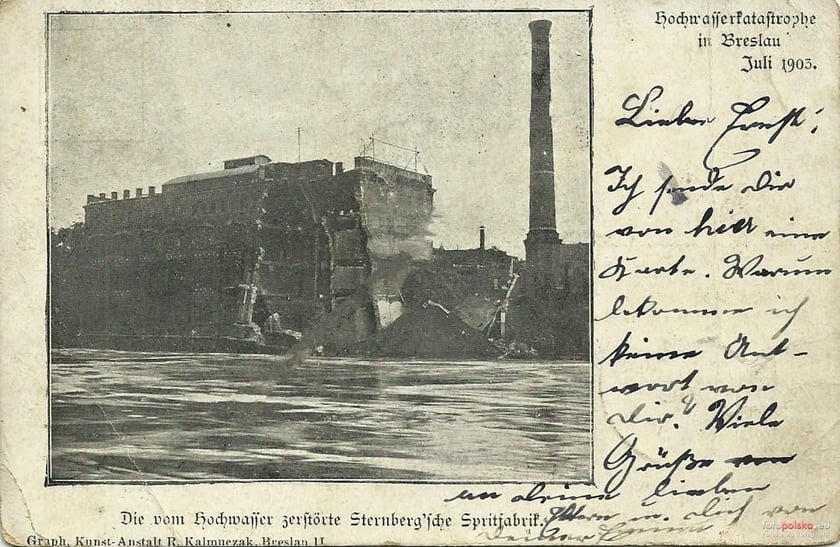 Hochwasserkatastrophe
in Breslau
Juli 1903.
Lieber Ernst!
Ich sende Dir
von hier eine
Karte. Warum
bekomme ich
keine Ant-
wort von
Dir? Viele
Grüße von
an deine lieben
Eltern u. dich von
Deiner
Die vom Hochwasser zerstörte Sternberg'sche Spritfabrik.
Graph. Kunst-Anstalt R. Kalmuczak, Breslau II
fotopolska.eu